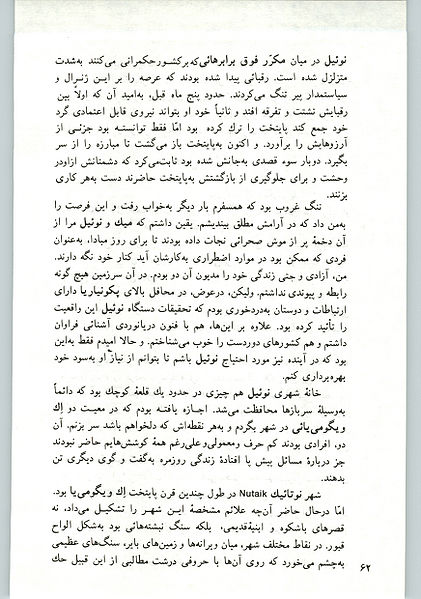 نوئیل در میان مکرّر فوق برابرهائی که برکشور حکمرانی می‌کنند به‌شدت
متزلزل شده است. رقبائی پیدا شده بودند که عرصه را بر این ژنرال و
سیاستمدار پیر تنگ می‌کردند. حدود پنج ماه قبل، به‌امید آن که اولاً بین
رقبایش تشتت و تفرقه افتد و ثانیاً خود او بتواند نیروی قابل اعتمادی گرد
خود جمع کند پایتخت را ترك کرده بود امّا فقط توانسته بود جزئی از
آرزوهایش را برآورد. و اکنون به‌پایتخت باز می‌گشت تا مبارزه را از سر
بگیرد. دوبار سوء قصدی به‌جانش شده بود ثابت‌می‌کرد که دشمنانش ازاودر
وحشت و برای جلوگیری از بازگشتش به‌پایتخت حاضرند دست به‌هر کاری
بزنند.
تنگ غروب بود که همسفرم بار دیگر به‌خواب رفت و این فرصت را
به‌من داد که در آرامش مطلق بیندیشم. یقین داشتم که میك و نوئیل مرا از
آن دخمهٔ پر از موش صحرائی نجات داده بودند تا برای روز مبادا، به‌عنوان
فردی که ممکن بود در موارد اضطراری به‌کارشان آید کنار خود نگه دارند.
من، آزادی و حتی زندگی خود را مدیون آن دو بودم. در آن سرزمین هیچ گونه
رابطه و پیوندی نداشتم. ولیکن، درعوض، در محافل بالای پکوتیاریا دارای
ارتباطات و دوستان به‌دردخوری بودم که تحقیقات دستگاه نوئیل این واقعیت
را تأئید کرده بود. علاوه بر این‌ها، هم با فنون دریانوردی آشنائی فراوان
داشتم و هم کشورهای دوردست را خوب می‌شناختم. و حالا امیدم فقط به‌این
بود که در آینده نیز مورد احتیاج نوئیل باشم تا بتوانم از نیاز او به‌سود خود
بهره‌برداری کنم.
خانهٔ شهری نوئیل هم چیزی در حدود یك قلعهٔ کوچك بود که دائماً
به‌وسیلهٔ سربازها محافظت می‌شد. اجازه یافته بودم که در معیت دو اِك
ویگومی‌یائی در شهر بگردم و به‌هر نقطه‌اش که دلخواهم باشد سر بزنم. آن
دو، افرادی بودند کم حرف ومعمولی‌وعلی‌رغم همهٔ کوشش‌هایم حاضر نبودند
جز دربارهٔ مسائل پیش پا افتادهٔ زندگی روزمره به‌گفت و گوی دیگری تن
بدهند.
شهر نوتائیك Nutaik در طول چندین قرن پایتخت اِك ویگومی‌یا بود.
امّا درحال حاضر آن‌چه علائم مشخصهٔ این شهر را تشکیل می‌داد، نه
قصرهای باشکوه و ابنیهٔ‌قدیمی، بلکه سنگ نبشته‌هائی بود به‌شکل الواح
قبور. در نقاط مختلف شهر، میان ویرانه‌ها و زمین‌های بایر، سنگ‌های عظیمی
به‌چشم می‌خورد که روی آن‌ها با حروفی درشت مطالبی از این قبیل حك
۶۲